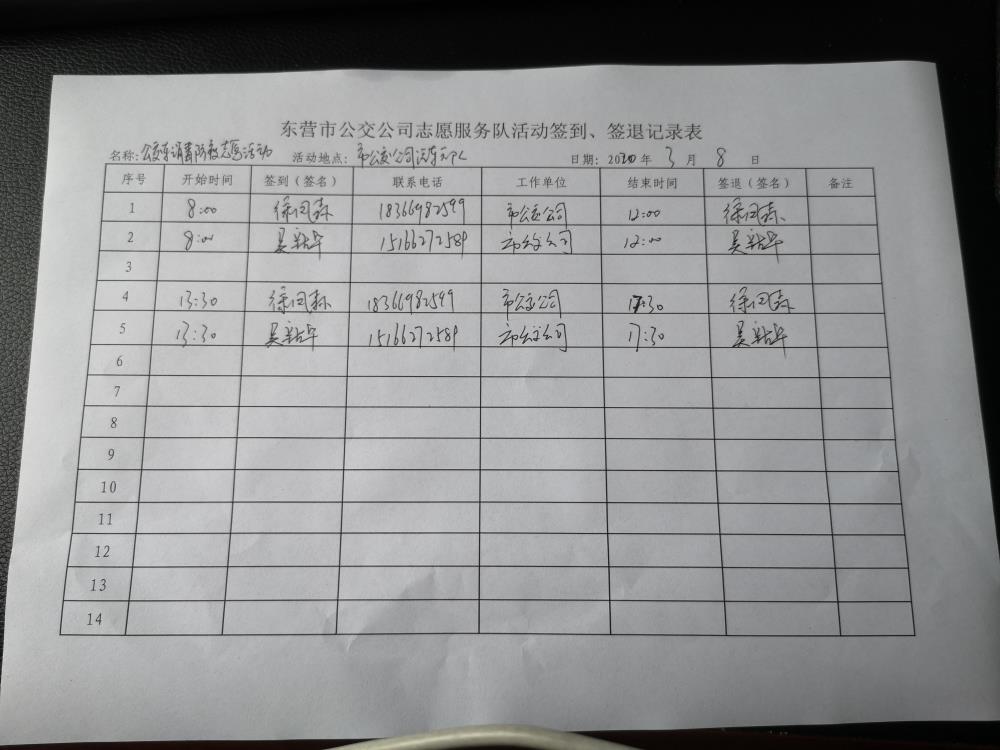 东营市公交公司志愿服务队活动签到、签退记录表
名称：公交车消毒防疫志愿活动 活动地点：市公交公司 日期：2020年 3 月 8 日
序号 开始时间 签到（签名） 联系电话 工作单位 结束时间 签退（签名） 备注
1 8:00 徐同森 18366982599 市公交公司 12:00 徐同森
2 8:00 吴 15166272589 市公交公司 12:00 吴
3
4 13:30 徐同森 18366982599 市公交公司 17:30 徐同森
5 13:30 吴 15166272589 市公交公司 17:30 吴
6
7
8
9
10
11
12
13
14